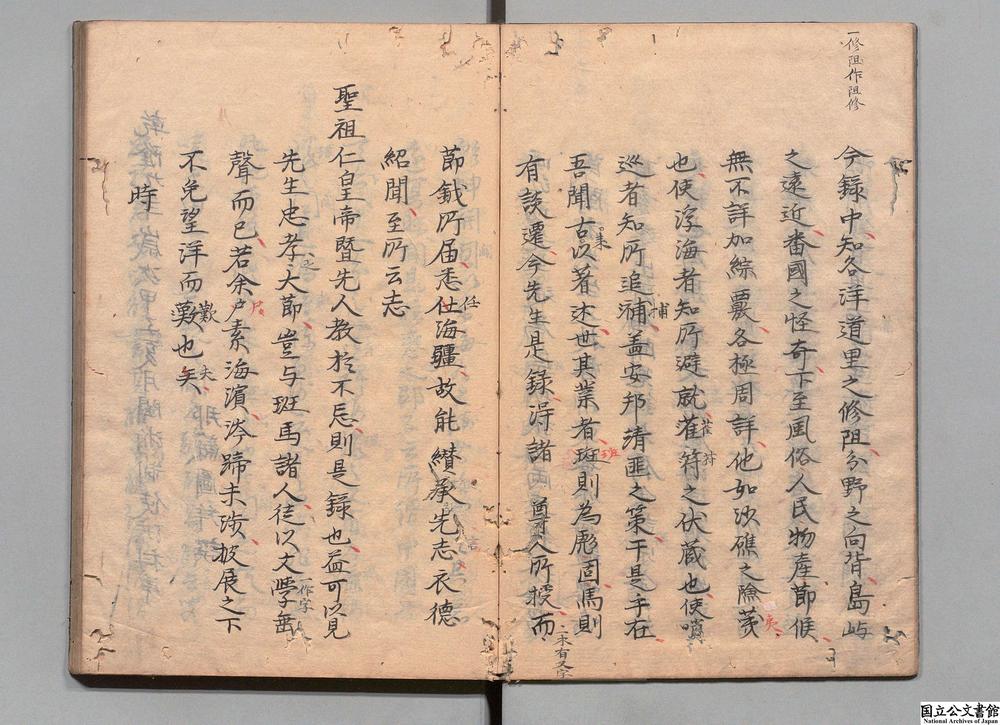 一修阻作阻修
今錄中知各洋道里之修阻分野之向背島嶼
之遠近番國之怪奇下至風俗人民物產節候
無不詳加綜覈各極周詳他如沙礁之險茭
夷
也使浮海者知所避就萑苻之伏藏也使嘨
萑苻
巡者知所追補盖安邦靖匪之策于是乎在
捕
吾聞古以著述世其業者班則為彪固馬則
班
有談遷今先生是錄淂諸尊人所授而
一本有又字
節鉞所届悉仕海疆故能纉承先志衣德
任
紹聞至所云志
聖祖仁皇帝暨先人教於不忘則是錄也益可以見
先生忠孝大節豈与班馬諸人徒以文學垂
之
一作字
聲而已若余户素海濱涔蹄未涉披展之下
尸
不免望洋而藪也矣
歎
夫
時
国立公文書館
National Archives of Japan